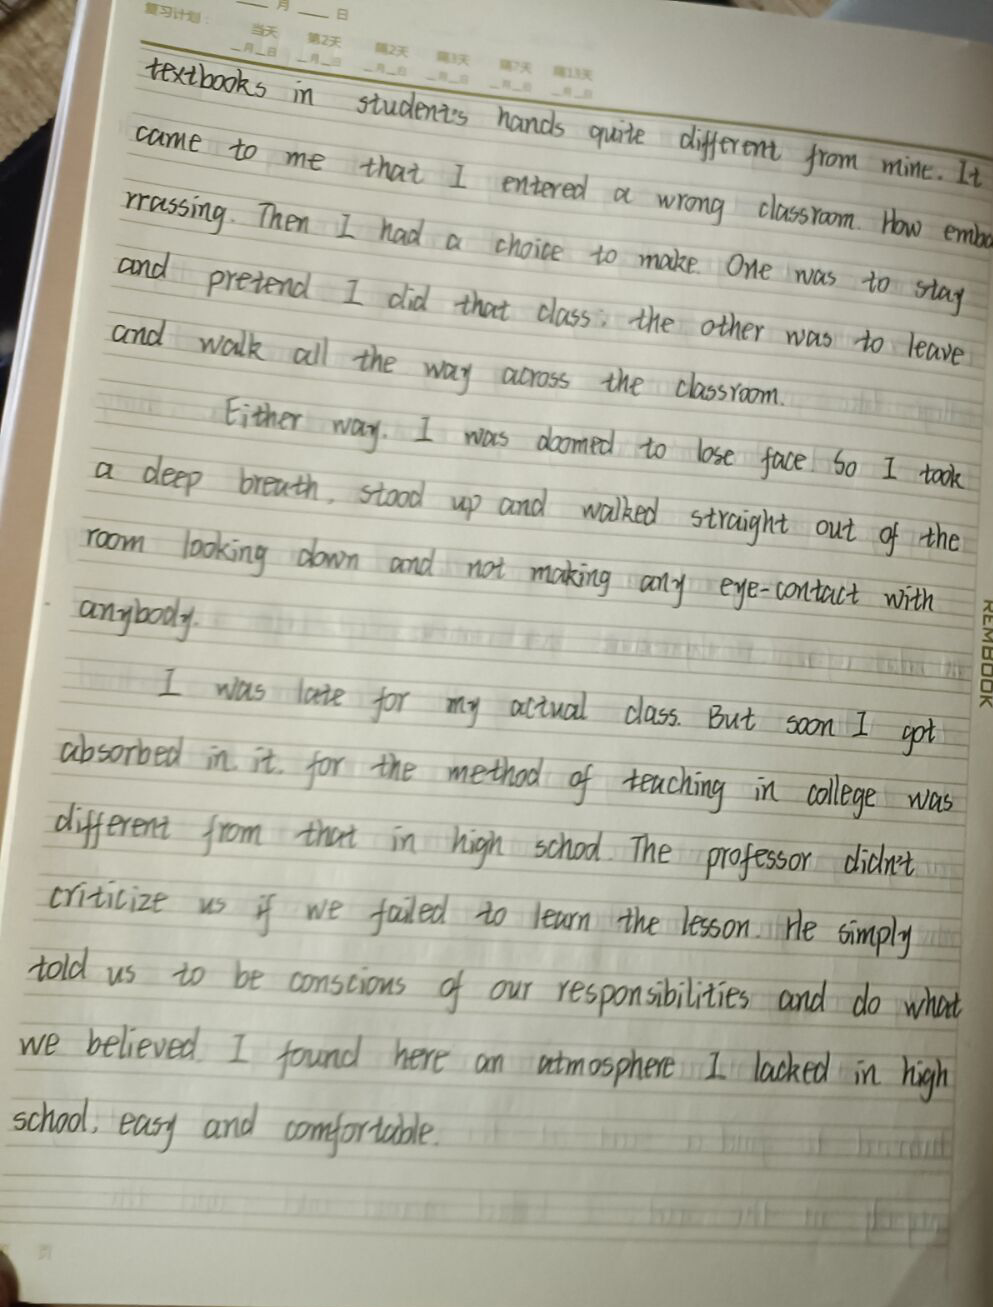 月 日
复习计划：
当天 第2天 隔2天 隔3天 隔7天 隔13天
_月_日 _月_日 _月_日 _月_日 _月_日 _月_日
textbooks in student's hands quite different from mine. It
came to me that I entered a wrong classroom. How emba
rrassing. Then I had a choice to make. One was to stay
and pretend I did that class; the other was to leave
and walk all the way across the classroom.
Either way, I was doomed to lose face. So I took
a deep breath, stood up and walked straight out of the
room looking down and not making any eye-contact with
anybody.
I was late for my actual class. But soon I got
absorbed in it. for the method of teaching in college was
different from that in high school. The professor didn't
criticize us if we failed to learn the lesson. He simply
told us to be conscious of our responsibilities and do what
we believed. I found here an atmosphere I lacked in high
school, easy and comfortable.
REMBOOK
页